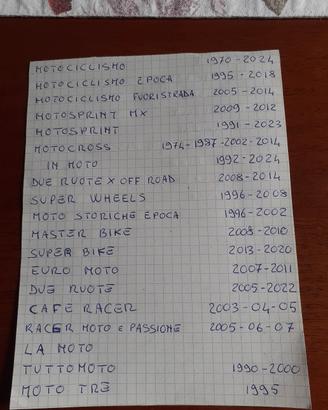 MOTOCICLISMO 1970-2024
MOTOCICLISMO EPOCA 1995-2018
MOTOCICLISMO FUORISTRADA 2005-2014
MOTOSPRINT MX 2009-2012
MOTOSPRINT 1991-2023
MOTOCROSS 1974-1987-2002-2014
IN MOTO 1992-2024
DUE RUOTE X OFF ROAD 2008-2014
SUPER WHEELS 1996-2008
MOTO STORICHE EPOCA 1996-2002
MASTER BIKE 2008-2010
SUPER BIKE 2013-2020
EURO MOTO 2007-2011
DUE RUOTE 2005-2022
CAFE RACER 2003-04-05
RACER MOTO E PASSIONE 2005-06-07
LA MOTO
TUTTOMOTO 1990-2000
MOTO TRE 1995